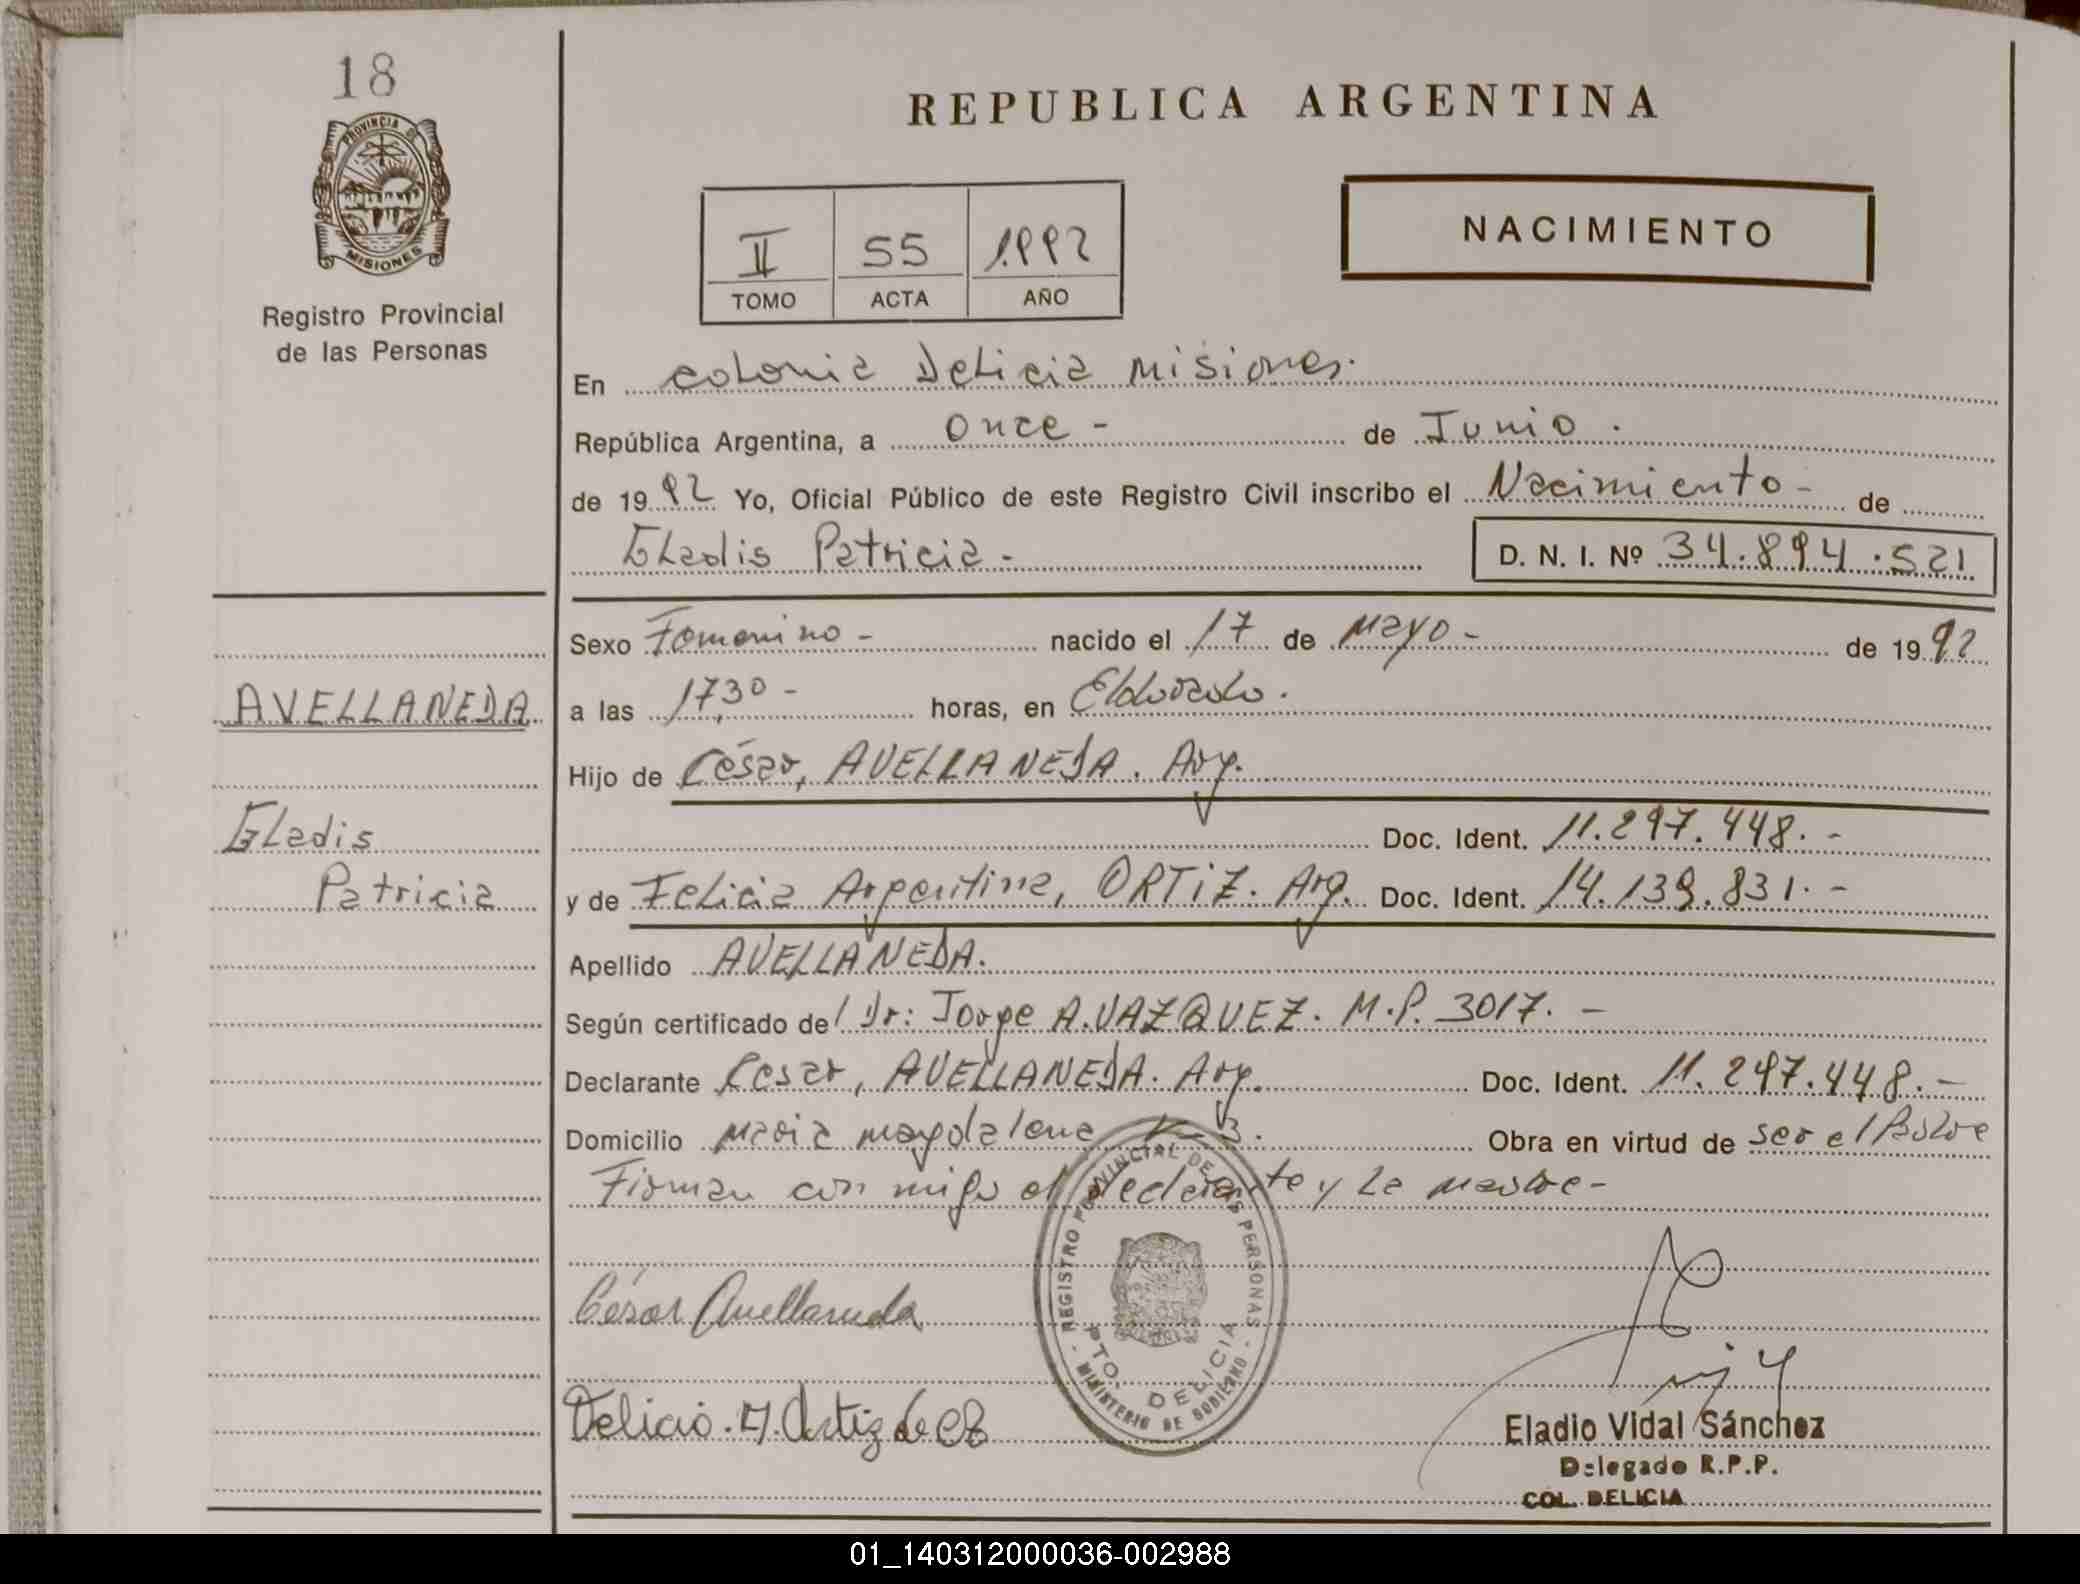 18
PROVINCIA DE
MISIONES
Registro Provincial
de las Personas
REPUBLICA ARGENTINA
II 55 1992
TOMO ACTA AÑO
NACIMIENTO
En colonia Delicia Misiones.
República Argentina, a once - de Junio.
de 1992 Yo, Oficial Público de este Registro Civil inscribo el Nacimiento - de
Gladis Patricia - D. N. I. Nº 34.894.521
Sexo Femenino - nacido el 17 de Mayo - de 1992
AVELLANEDA
a las 17,30 - horas, en Eldorado.
Hijo de César, AVELLANEDA. Arg.
Gladis
Doc. Ident. 11.297.448. -
Patricia
y de Felicia Argentina, ORTIZ. Arg. Doc. Ident. 14.139.831. -
Apellido AVELLANEDA.
Según certificado del Dr: Jorge A. VAZQUEZ. M.P. 3017. -
Declarante Cesar, AVELLANEDA. Arg. Doc. Ident. 11.297.448. -
Domicilio Maria Magdalena K-3. Obra en virtud de ser el Padre
Firman con migo el declarante y La madre -
César Avellaneda
REGISTRO PROVINCIAL DE LAS PERSONAS
PTO. DELICIA
- MINISTERIO DE GOBIERNO -
Ortiz de
Eladio Vidal Sánchez
Delegado R.P.P.
COL. DELICIA
01_140312000036-002988